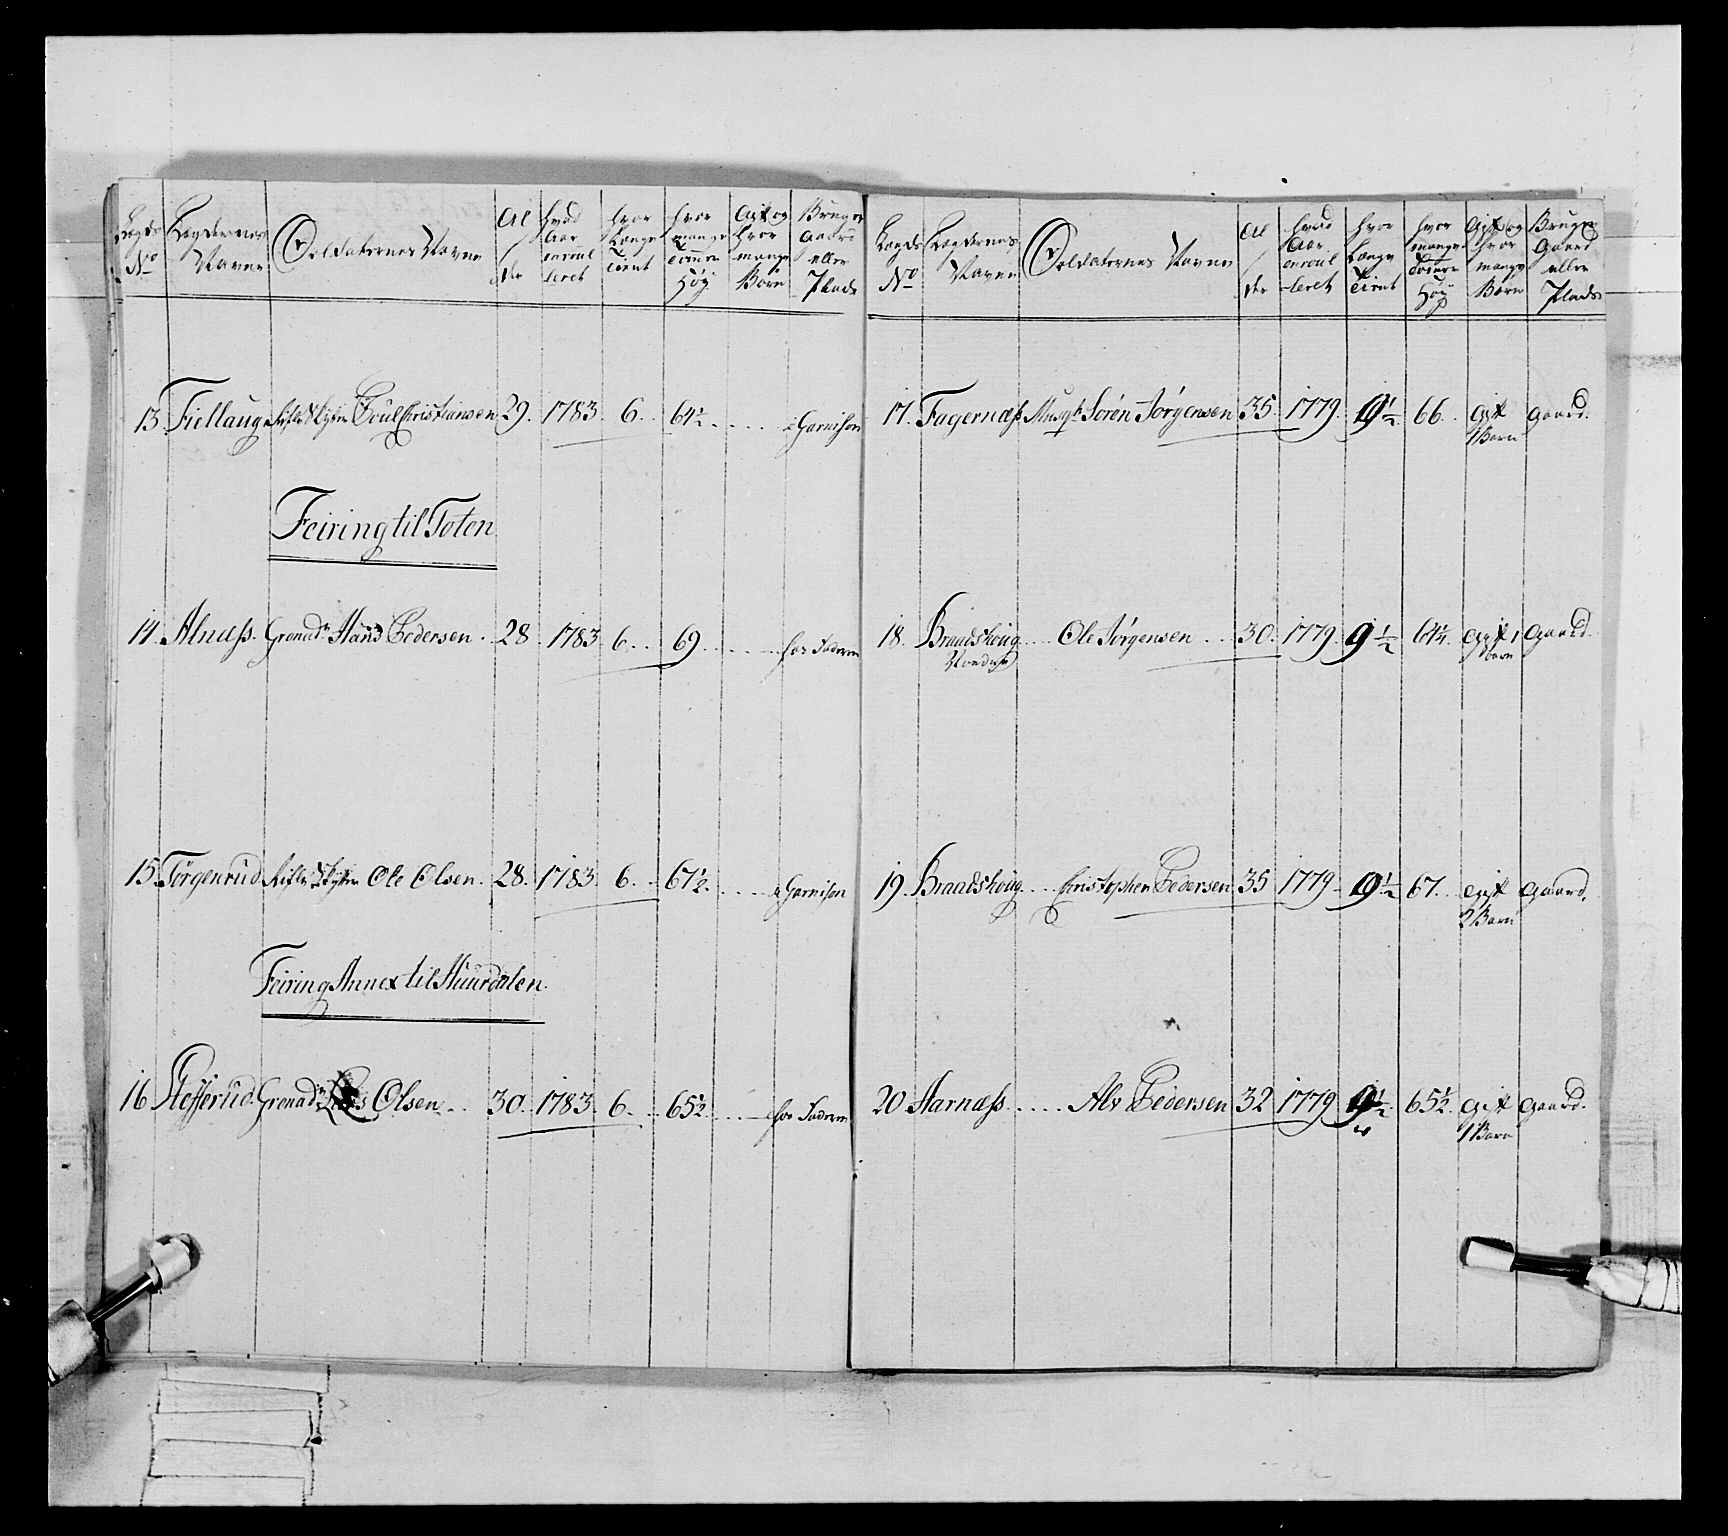 Lægds No
Lægdernes Navne
Soldaternes Navne
Al/der
hvad Aar enroulleret
hvor Længe tient
hvor mange Tomer Høy
Gift og hvor mange Børn
Bruger Gaard eller Plads
13. Fiellaug Poul Christiansen 29. 1783. 6. 64½ Garnison
Feiring til Toten
14. Alnæss. Grenadr Hans Pedersen. 28. 1783. 6. 69 hos Faderen
15. Tørgenrud Ole Olsen. 28. 1783. 6. 67½. Garnison
Feiring Annex til Huurdalen.
16. Grenadr Olsen. 30. 1783. 6. 65½ hos Faderen
Lægds No
Lægdernes Navne
Soldaternes Navne
Al/der
hvad Aar enroulleret
hvor Længe tient
hvor mange Tomer Høy
Gift og hvor mange Børn
Bruger Gaard eller Plads
17. Fagernæss Musqt Sørøn Jørgensen 35. 1779. 9½ 66. Gift Gaard.
1 Barn
18. Braadshoug Ole Jørgensen 30. 1779. 9½ 64½. Gift 1 Gaard.
Nordre barn
19. Braadshoug Christopher Pedersen 35 1779. 9½ 67. Gift Gaard.
2 Børn
20 Harnæss. Alv Pedersen 32 1779 9½ 65½. Gift Gaard.
1 Barn